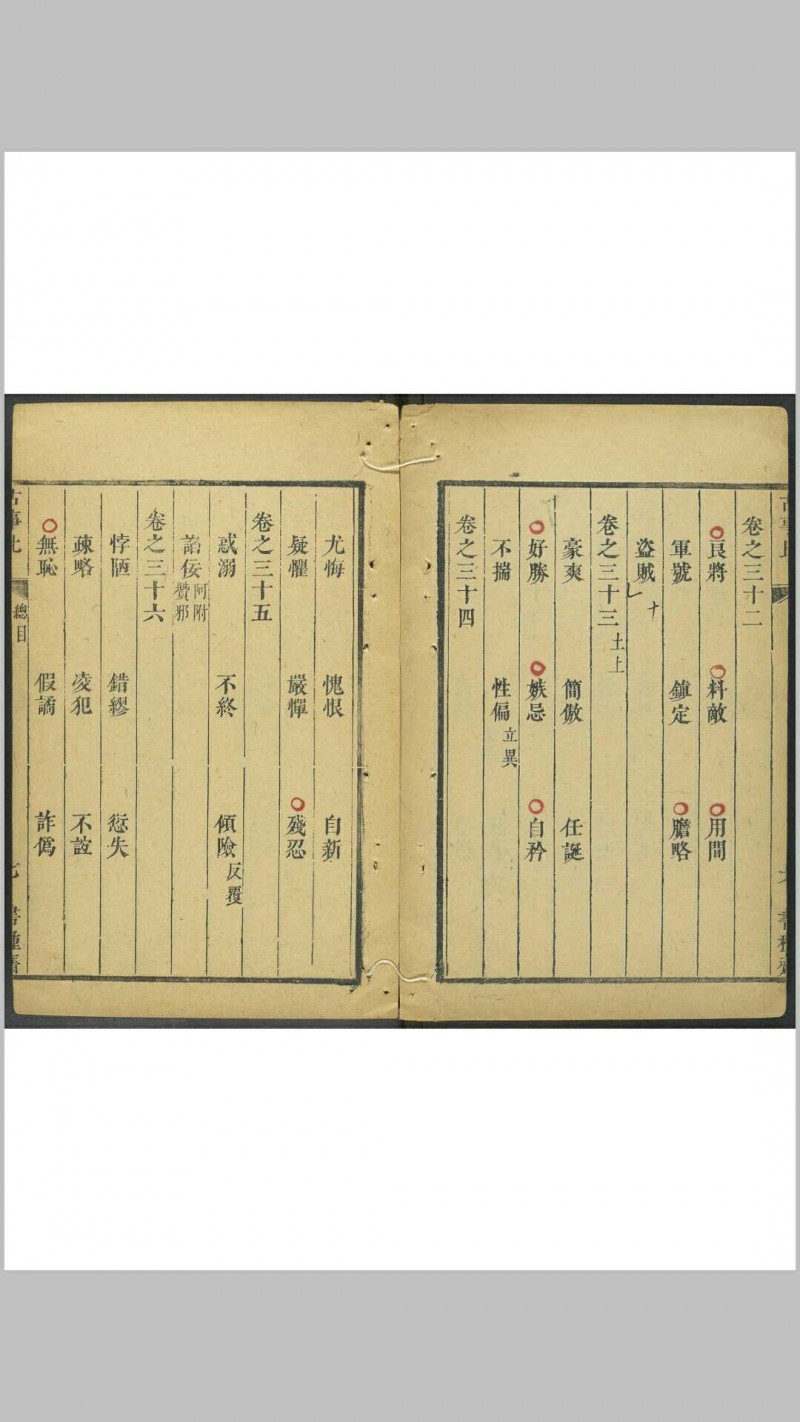 古事比
卷之三十二
良將 料敵 用間
軍號 鎮定 膽略
盜賊 十
卷之三十三 土上
豪爽 簡傲 任誕
好勝 嫉忌 自矜
不揣 性偏 立異
卷之三十四
尤悔 愧恨 自新
疑懼 嚴憚 殘忍
卷之三十五
惑溺 不終 傾險 反覆
諂佞 阿附 贊邪
卷之三十六
悖陋 錯繆 愆失
疎略 凌犯 不誼
無恥 假譎 詐僞
古事比 總目 七 書種齋